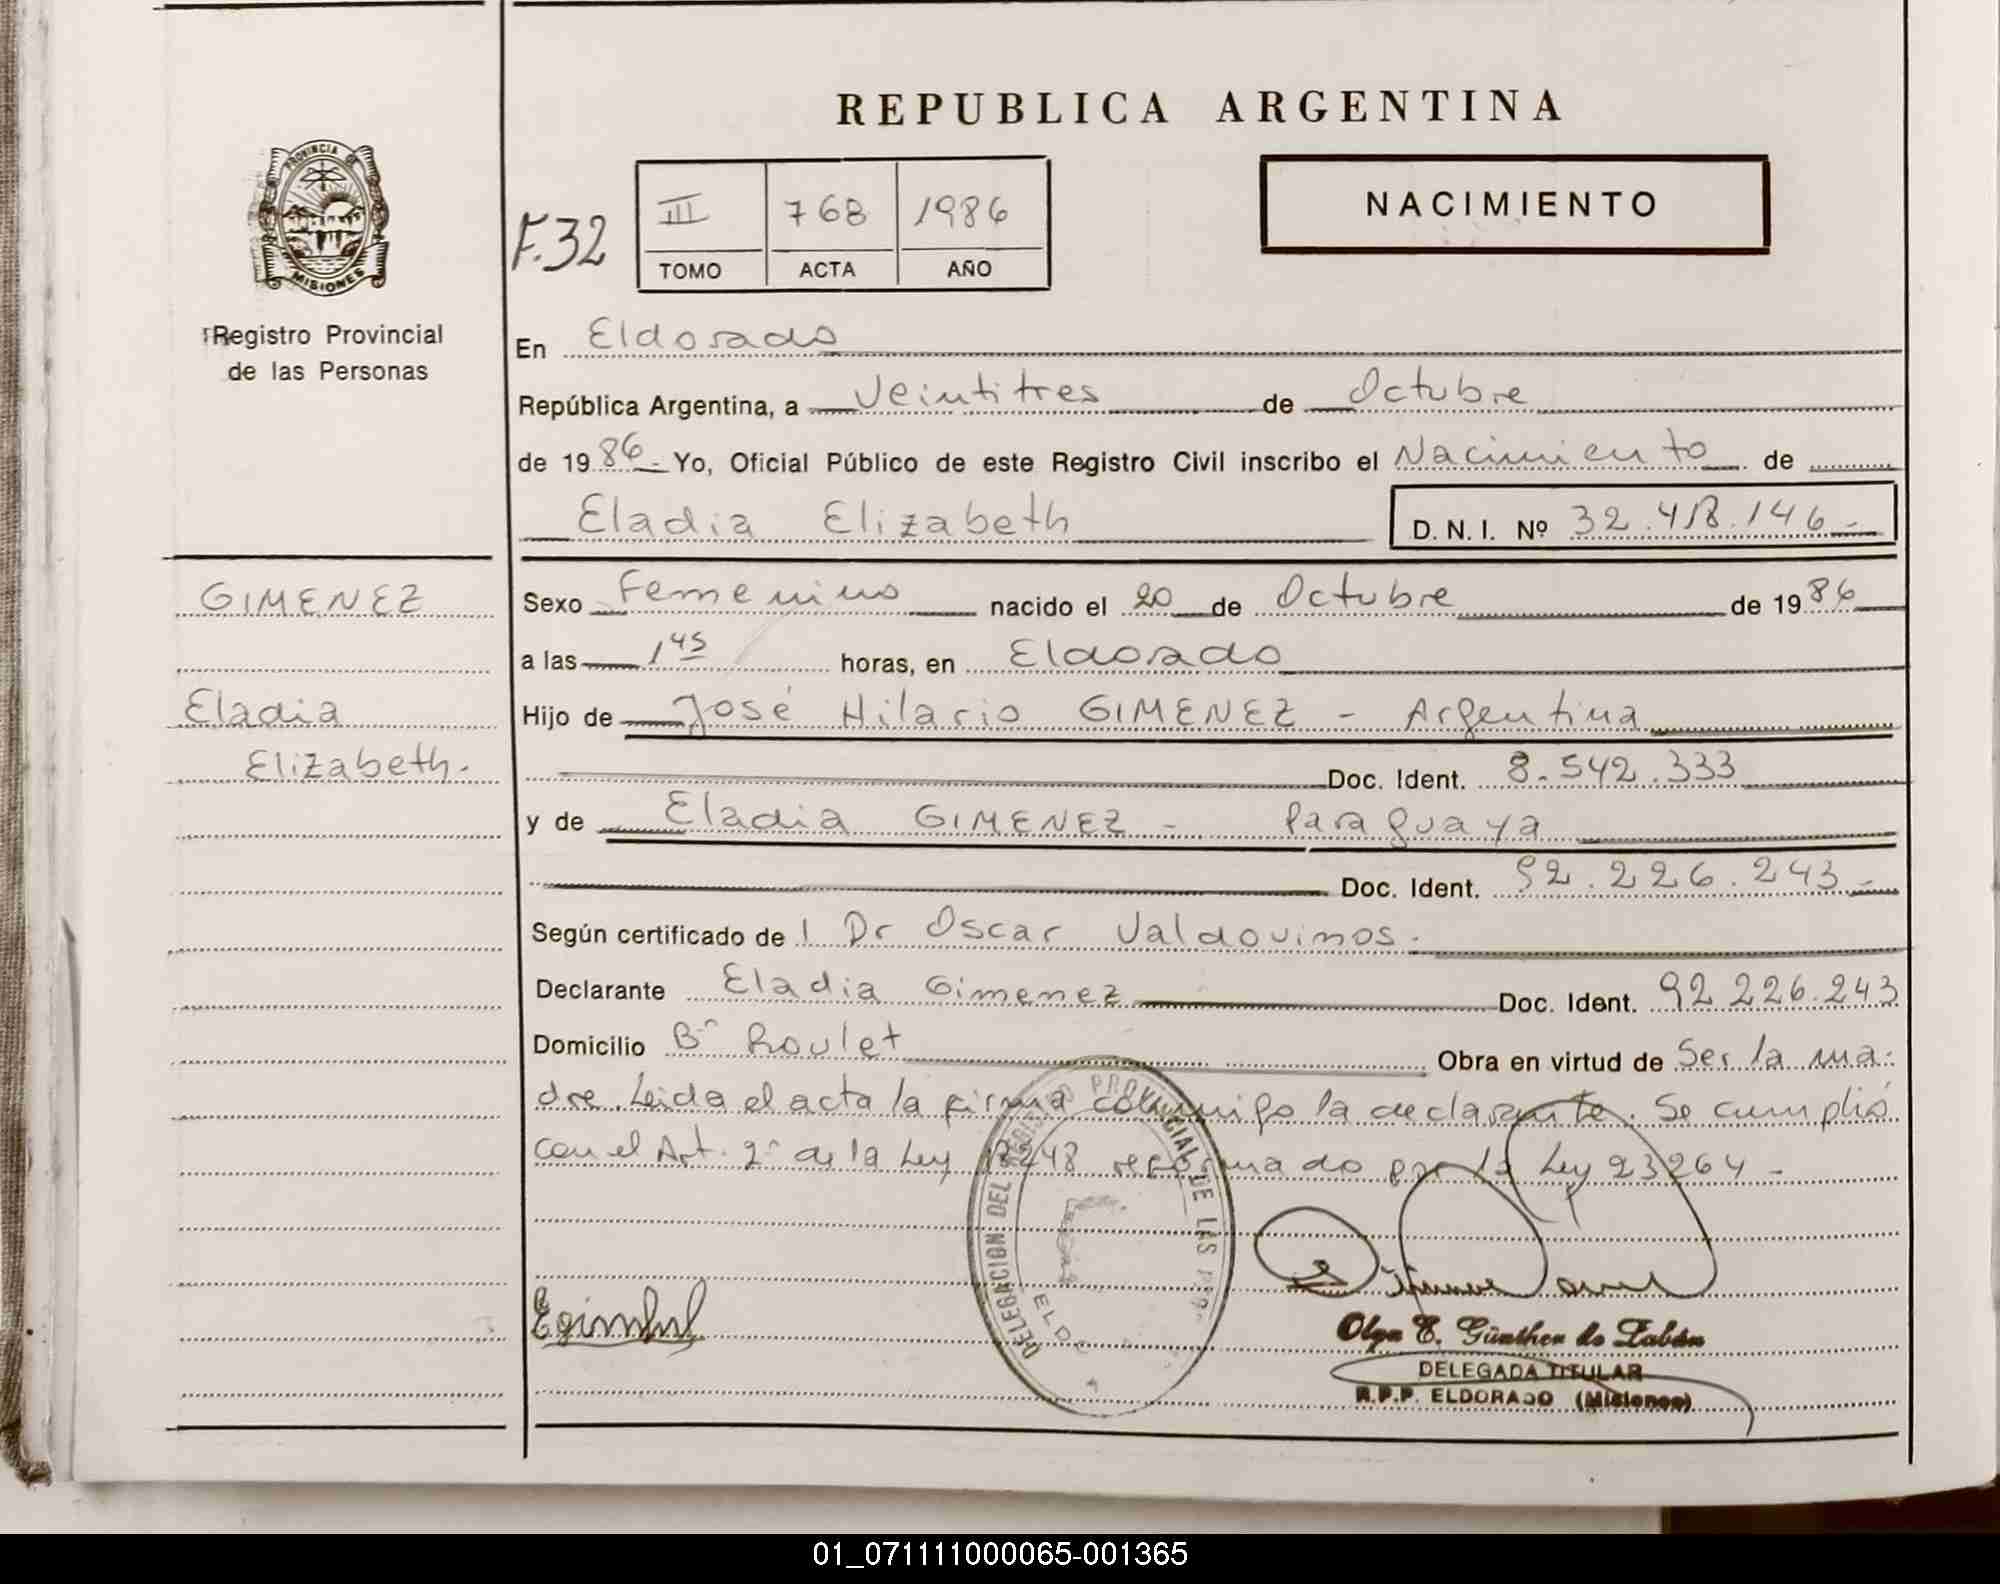 REPUBLICA ARGENTINA
PROVINCIA DE
MISIONES
Registro Provincial
de las Personas
F.32
III 768 1986
TOMO ACTA AÑO
NACIMIENTO
En Eldorado
República Argentina, a Veintitres de Octubre
de 1986.- Yo, Oficial Público de este Registro Civil inscribo el Nacimiento de
Eladia Elizabeth D.N.I. Nº 32.418.146.-
GIMENEZ
Eladia
Elizabeth.-
Sexo Femenino nacido el 20 de Octubre de 1986
a las 1 45 horas, en Eldorado
Hijo de José Hilario GIMENEZ - Argentina
Doc. Ident. 8.542.333
y de Eladia GIMENEZ - Paraguaya
Doc. Ident. 92.226.243.-
Según certificado de l Dr Oscar Valdovinos.
Declarante Eladia Gimenez Doc. Ident. 92.226.243
Domicilio Bº Roulet Obra en virtud de Ser la ma-
dre. Leida el acta la firma conmigo la declarante. Se cumplió
con el Art. 2º de la Ley 18248 reformado por la Ley 23264 -
DELEGACION DEL REGISTRO PROVINCIAL DE LAS
Olga E. Günther de Zabán
DELEGADA TITULAR
R.P.P. ELDORADO (Misiones)
01_071111000065-001365